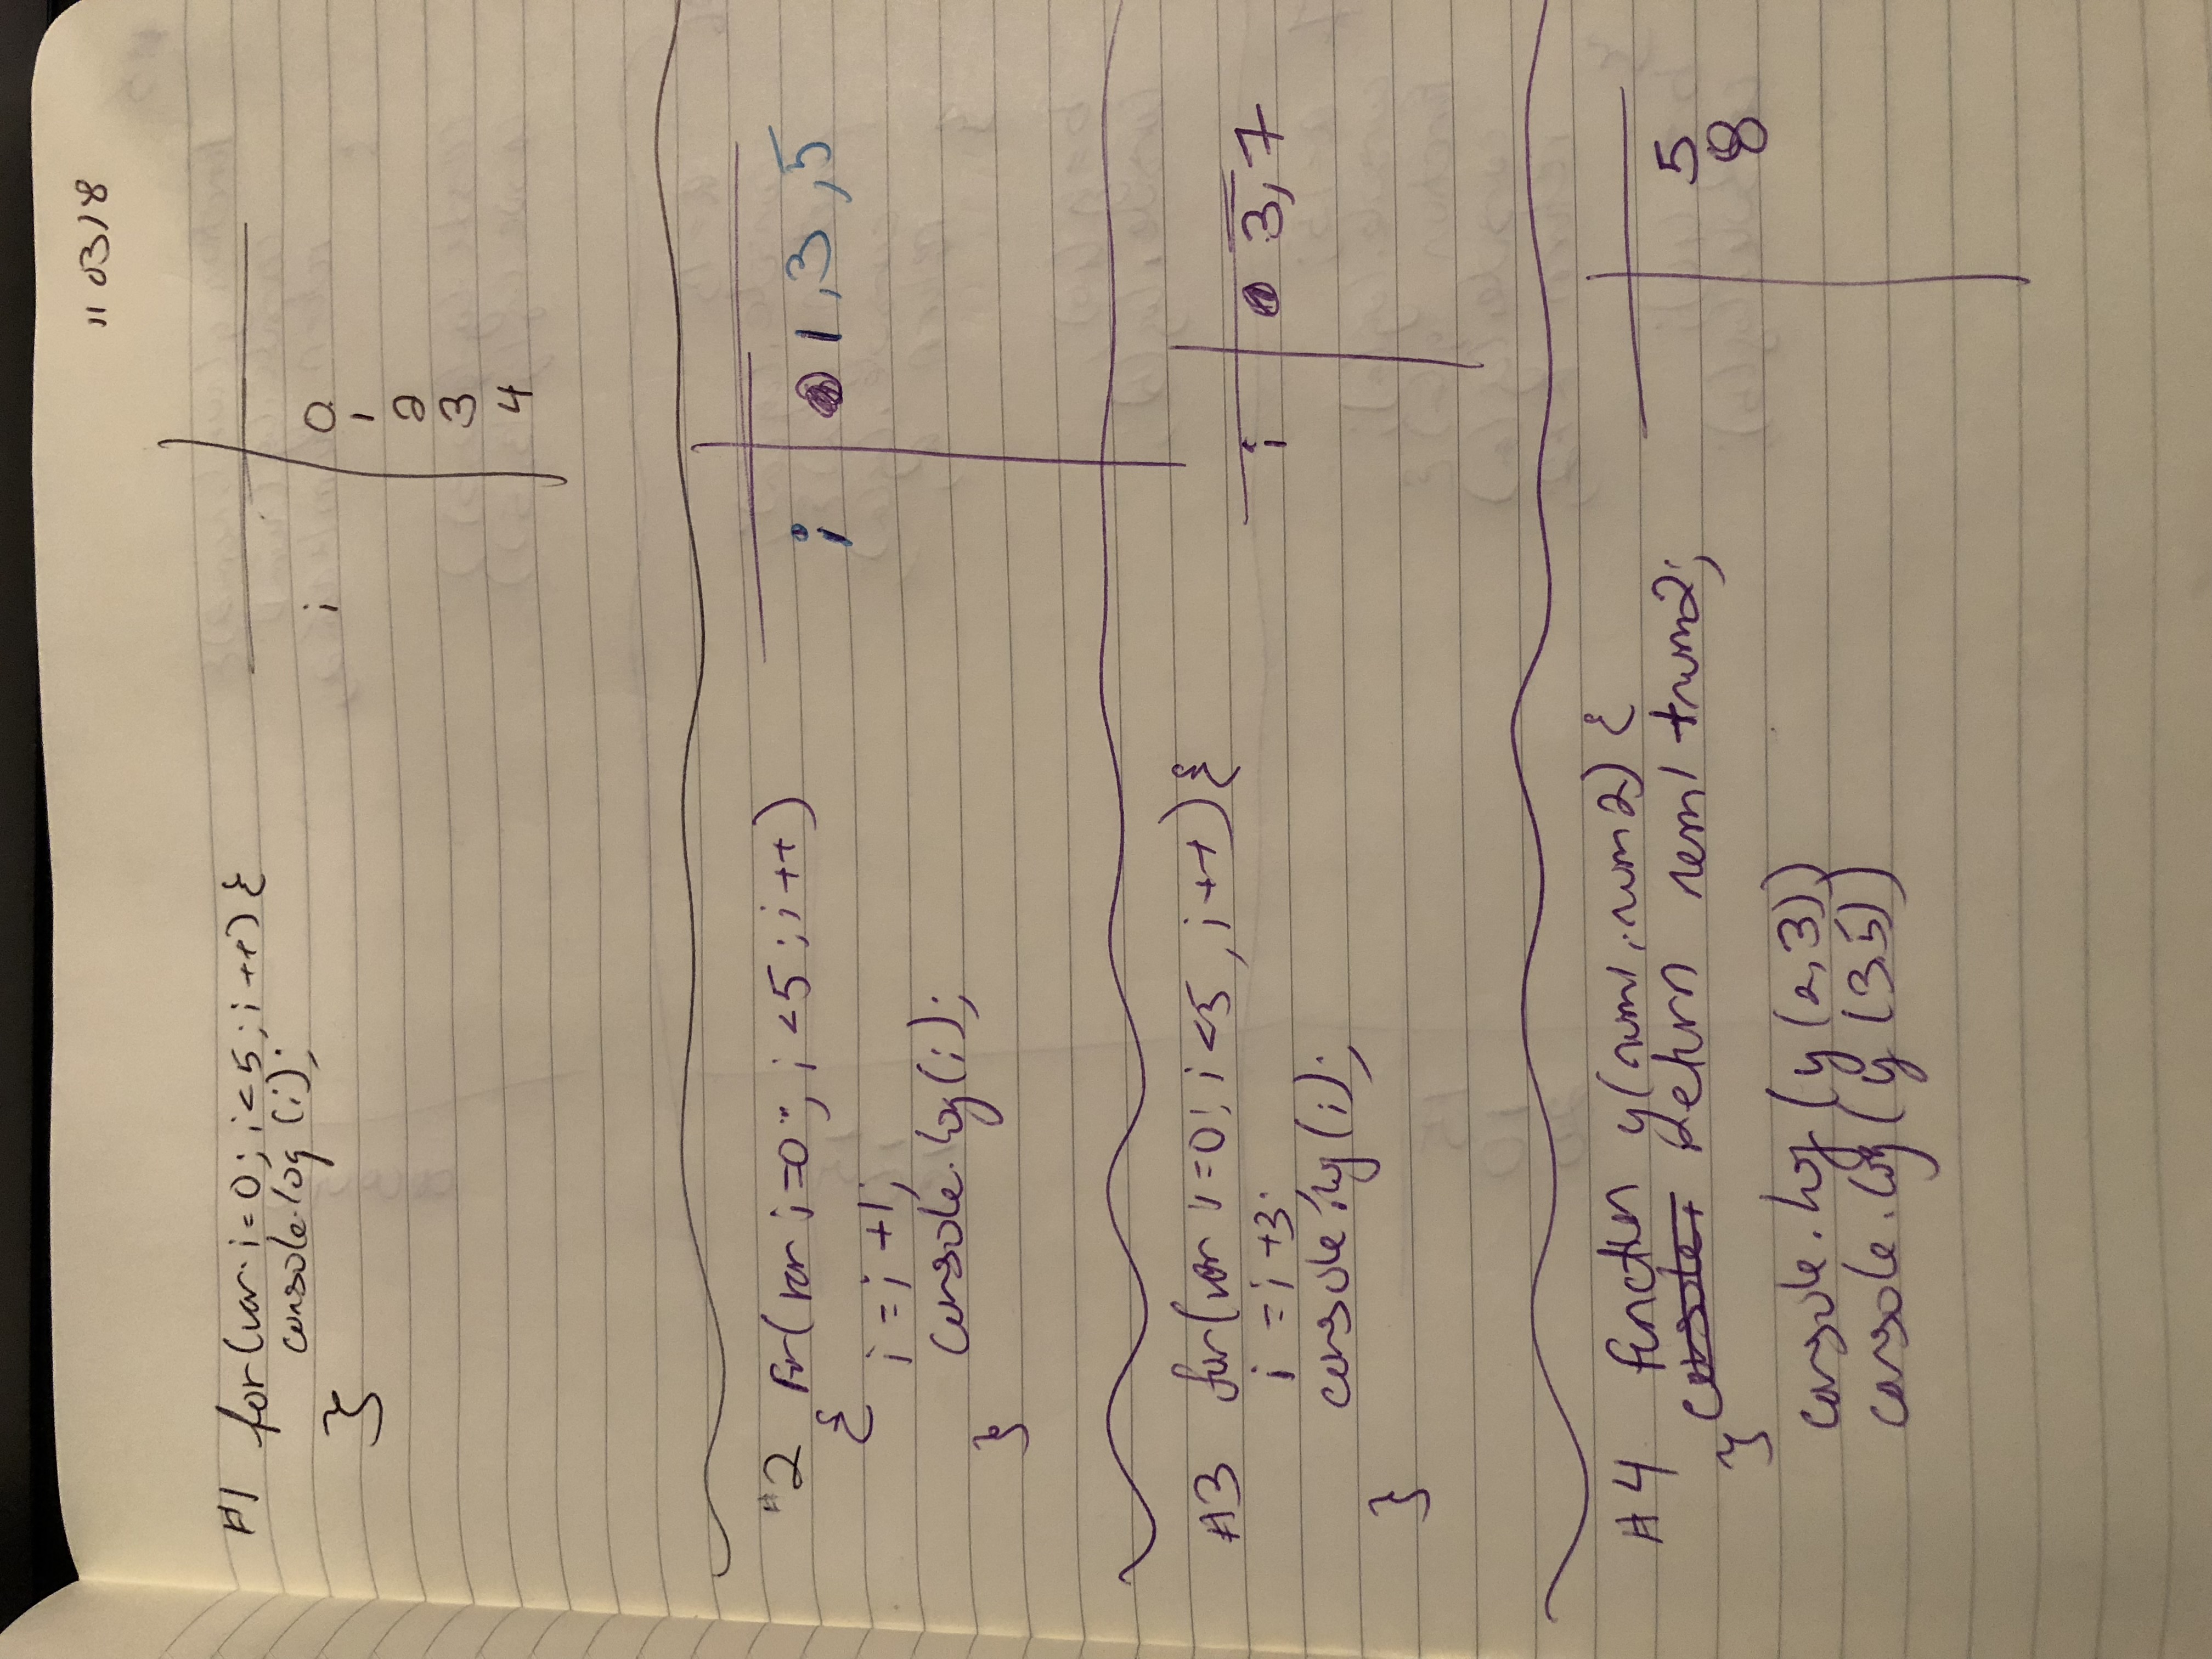 110318
#1 for(var i=0; i<5; i++) {
console.log(i);
}
i 0
1
2
3
4
#2 for(var i=0; i<5; i++)
{
i = i +1;
console.log(i);
}
i 1,3,5
#3 for(var i=0; i<5, i++) {
i = i +3;
console.log(i);
}
i 3,7
#4 function y(num1, num2) {
console. return num1 + num2;
}
console.log(y(2,3))
console.log(y(3,5))
5
8